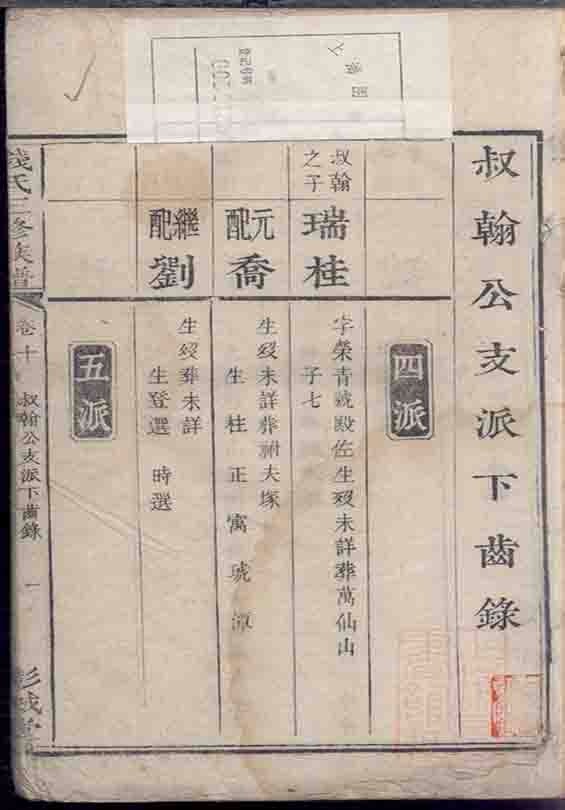 叔翰公支派下齒錄
四派
叔翰之子
瑞桂
字榮青號毅佐生歿未詳葬萬仙山
子七
元配
喬
生歿未詳葬祔夫塚
生 桂 正 寓 琥 潭
繼配
劉
生歿葬未詳
生登選 時選
五派
錢氏三修族譜
卷十
叔翰公支派下齒錄
一
彭城堂
登記號碼